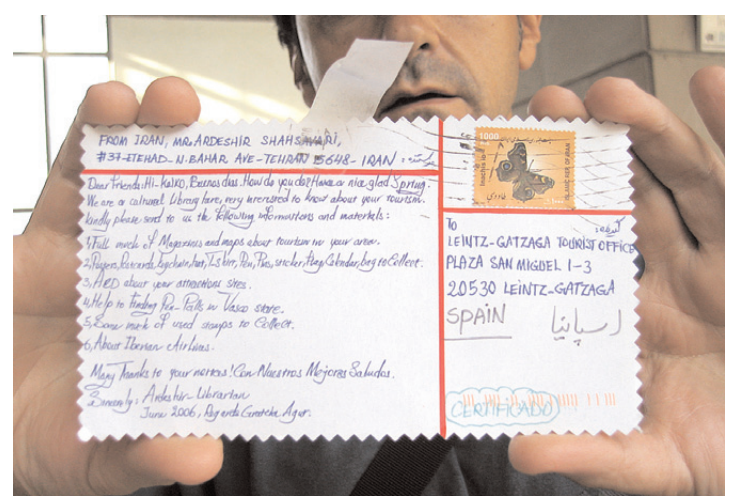 FROM IRAN, MR. ARDESHIR SHAHSAVARI,
#37-ETEHAD-N.BAHAR AVE-TEHRAN 15648-IRAN
Dear Friends: Hi-Kaixo, Buenos dias. How do you do? Have a nice, glad Spring.
We are a cultural Library here, very interested to know about your tourism.
kindly please send to us the following informations and materials:
1, Full much of Magazines and maps about tourism in your area.
2, Papers, Postcards, keychain, hat, T.shirt, Pen, Pins, sticker, Flag, Calendar, bag to Collect.
3, about your attractions sites.
4, Help to finding Pen-Palls in Vasco store.
5, Some much of used stamps to Collect.
6, About Iberian Airlines.
Many Thanks to your notices! Con Nuestros Mejores Saludos.
Sincerely: Ardeshir-Librarian
June 2006, Agur.
1000
ISLAMIC REP. OF IRAN
To
LEINTZ-GATZAGA TOURIST OFFICE
PLAZA SAN MIGUEL 1-3
20530 LEINTZ-GATZAGA
SPAIN اسپانیا
CERTIFICADO